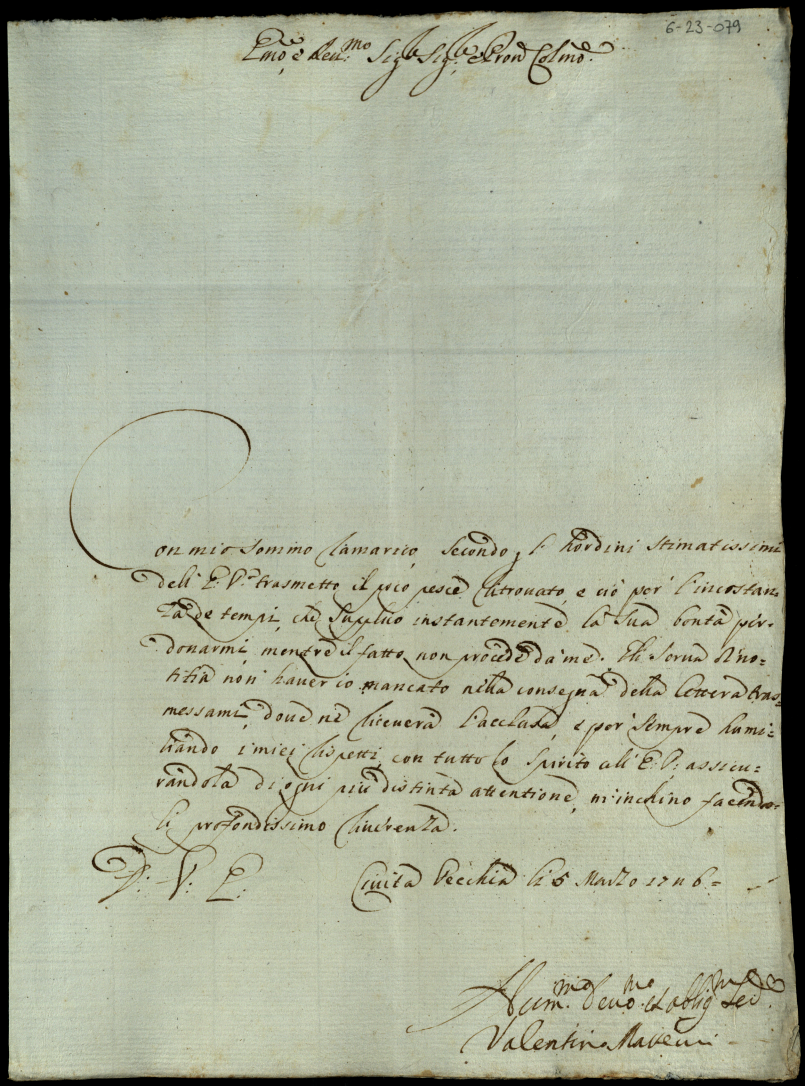 6-23-079
Emo e Reu.mo Sig.r Sig.r e Pron Colmo.
Con mio sommo ramarico, secondo l' hordini stimatissimi
dell' E. V.ra trasmetto il pocò pescè ritrouato, e ciò per l'incostan-
za de tempi, chè supplico instantementè la sua bontà per-
donarmi, mentrè il fatto non procedè da mè. Gli serua di no-
titia non' hauer io mancato nella consegna della lettera tras-
messami, doue nè riceuerà l'acclusa, e per sempre humi-
liando i miei rispetti con tutto lo spirito all' E. V. assicu-
randola di ogni più distinta attentionè, m'inchino facendo-
li profondissimo riuerenza.
D. V. E. Ciuita Vecchia li 5 Marzo 1746 =
Hum.mo Deuo.mo et obblig.mo Ser.
Valentino